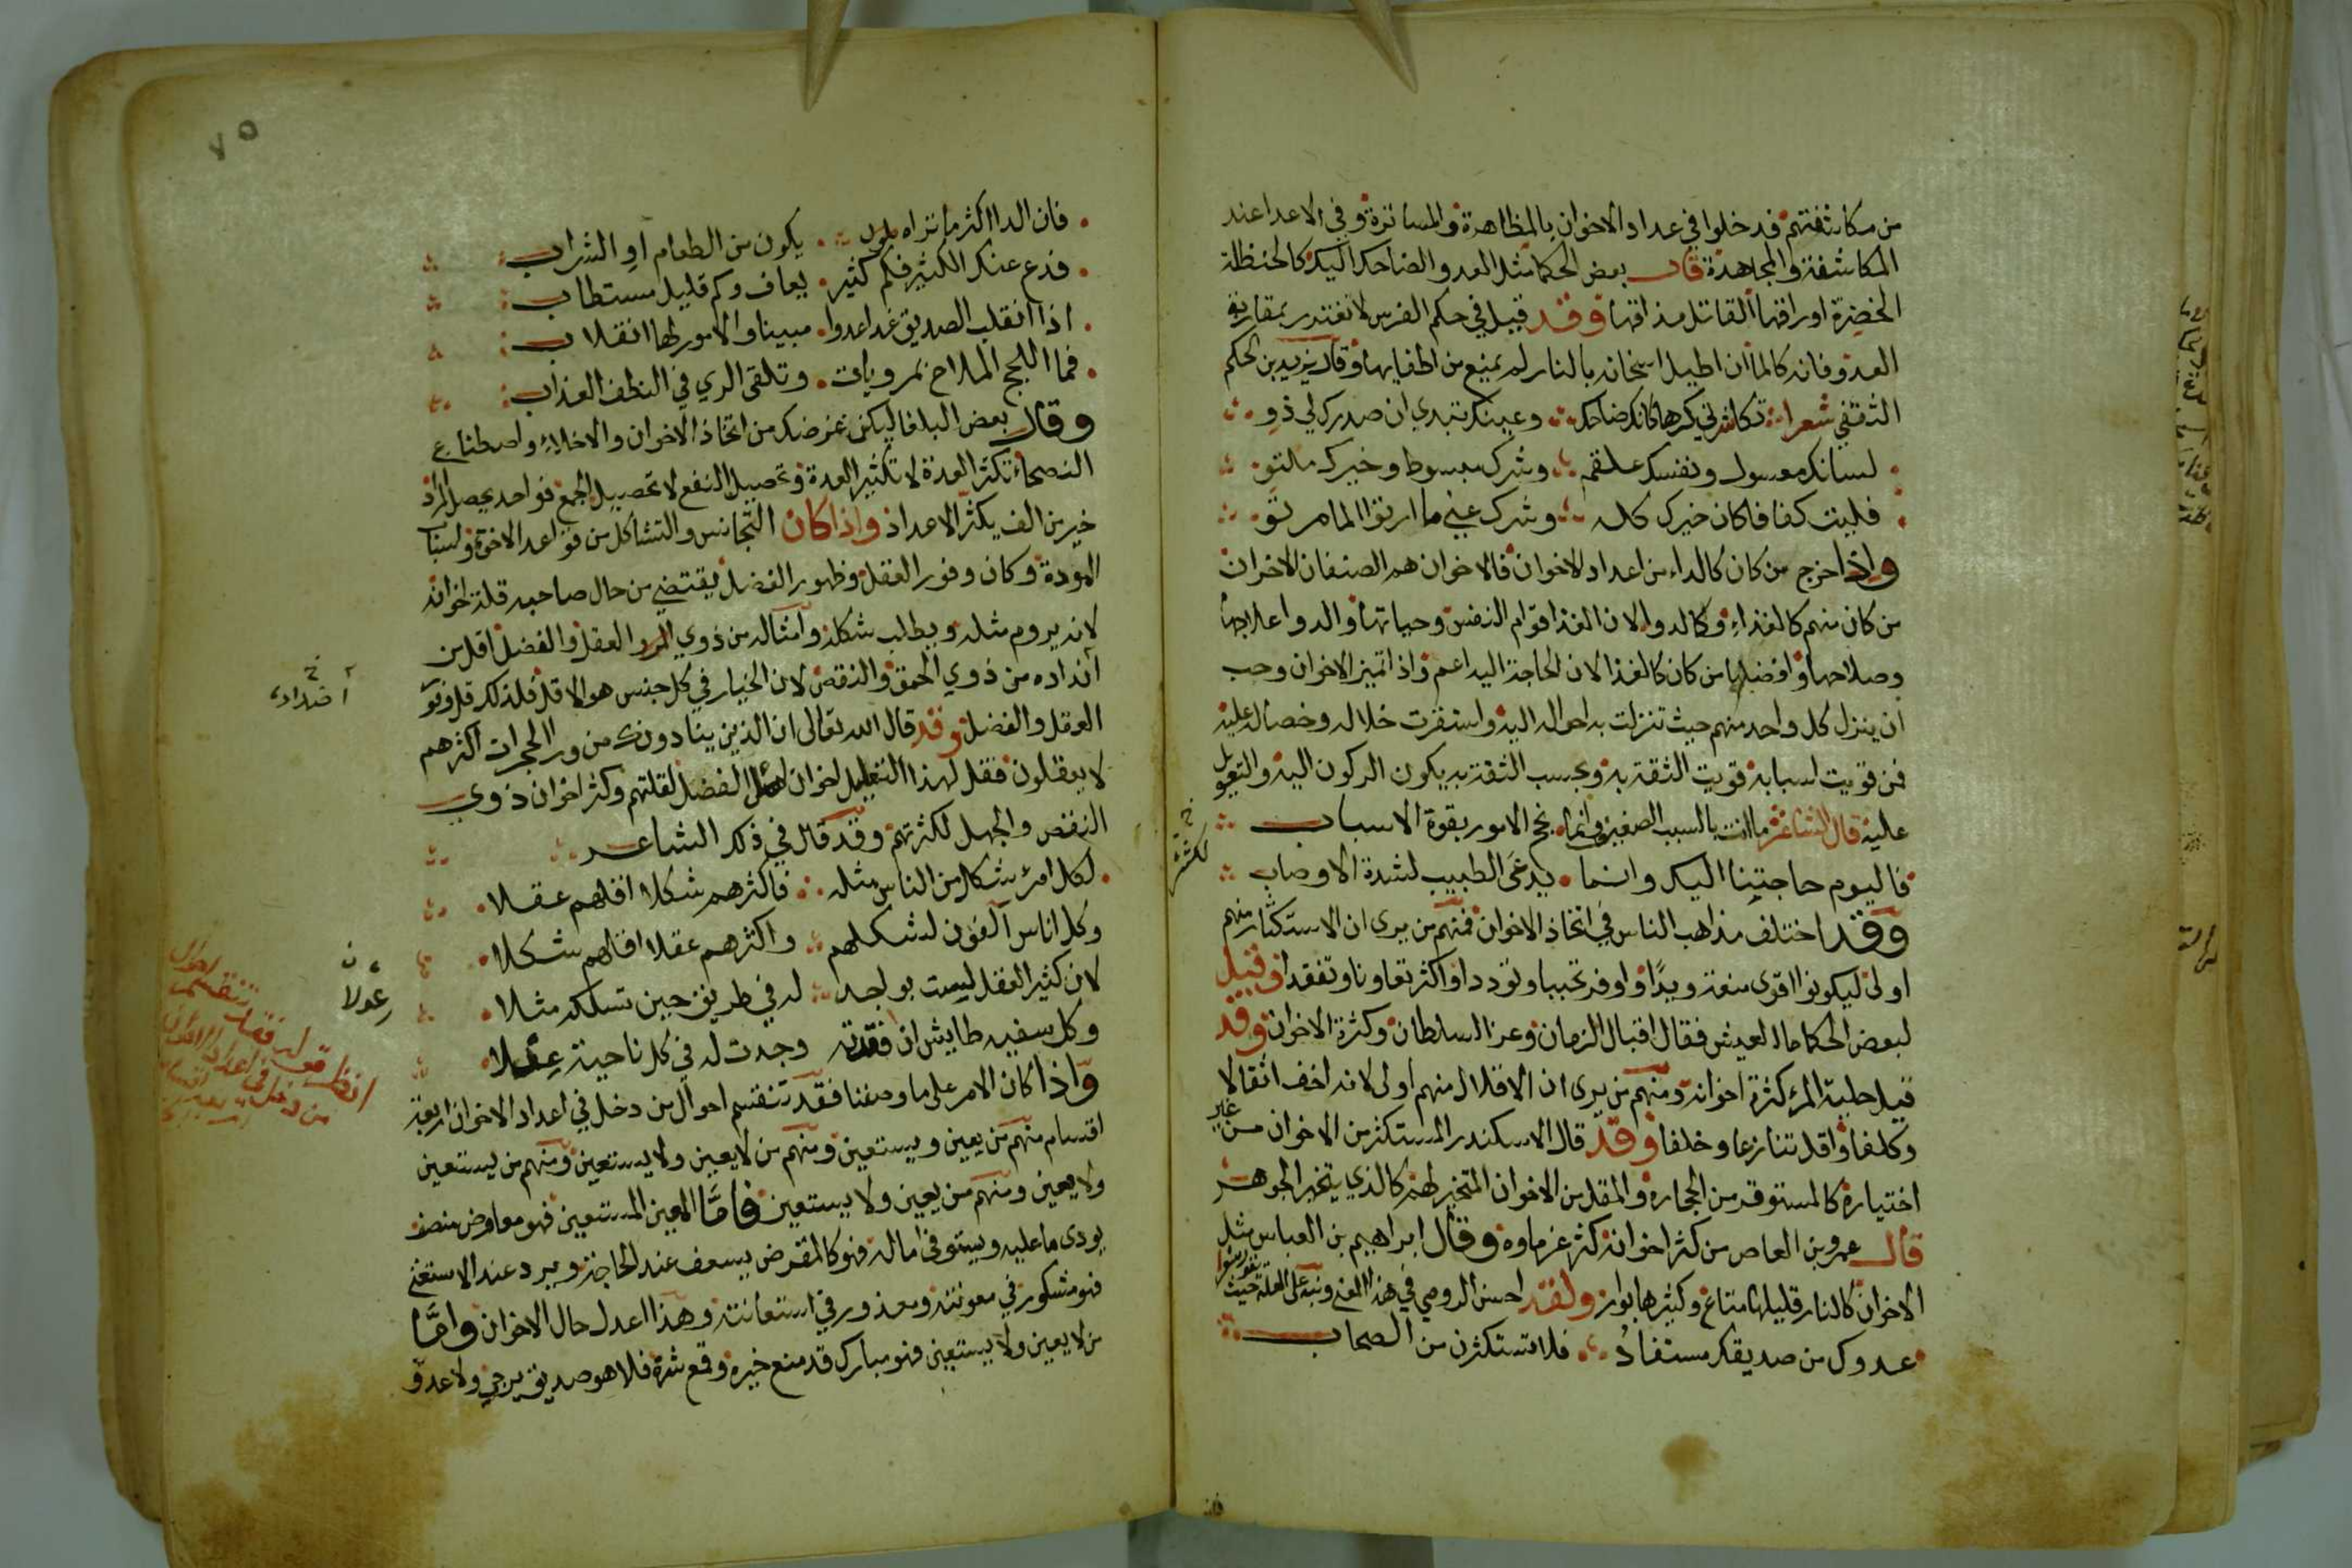 من مكاشفتهم فدخلوا في عداد الاخوان بالمظاهرة والمساترة وفي الاعدا عند
المكاشفة والمجاهدة قال بعض الحكما مثل العدو الضاحك اليك كالحنظلة
الخضرة اوراقها القاتل مذاقها وقد قيل في حكم الفرس لا تغتدر بمقاربة
العدو فانه كالما ان اطيل اسخانه بالنار لم يمنع من اطفايها وقال يزيد بن الحكم
الثقفي شعرا تكاشرني كرها كانك ضاحك وعينك تبدي ان صدرك لي ذو
لسانك معسول ونفسك علقم وشرك مبسوط وخيرك ملتو
فليت كفافا كان خيرك كله وشرك عني ما ارتوا الما مرتو
واذا خرج من كان كالداء من اعداد الاخوان فالاخوان هم الصنفان الاخران
من كان منهم كالغذاء وكالدوا لان الغذا قوام النفس وحياتها والدوا علاجها
وصلاحها وافضلها من كان كالغذا لان الحاجة اليه اعم واذا تميز الاخوان وجب
ان ينزل كل واحد منهم حيث تنزلت به احواله اليه واستقرت خلاله وخصاله عليه
فمن قويت اسبابه قويت الثقة به وبحسب الثقة به يكون الركون اليه والتعويل
عليه قال الشاعر ما انت بالسبب الصغير وانما نجح الامور بقوة الاسباب
فاليوم حاجتنا اليك وانما يدعى الطبيب لشدة الاوصاب
وقد اختلف مذاهب الناس في اتخاذ الاخوان فمنهم من يرى ان الاستكثار منهم
اولى ليكونوا اقوى منعة ويدا واوفر تحببا وتوددا واكثر تعاونا وتفقدا وقيل
لبعض الحكما ما العيش فقال اقبال الزمان وعز السلطان وكثرة الاخوان وقد
قيل حلية المرء كثرة اخوانه ومنهم من يرى ان الاقلال منهم اولى لانه اخف اثقالا
وكلفا واقل تنازعا وخلفا وقد قال الاسكندر المستكثر من الاخوان من غير
اختياره كالمستوقر من الحجارة والمقل من الاخوان المتخير لهم كالذي يتخير الجوهر
قال عمرو بن العاص من كثر اخوانه كثر غرماوه وقال ابراهيم بن العباس مثل
الاخوان كالنار قليلها متاع وكثيرها بوار ولقد احسن الرومي في هذا المعنى ونبه على العلة حيث
عدوك من صديقك مستفاد فلا تستكثرن من الصحاب
لكثرة
فان
٧٥
فان الدا اكثر ما تراه يكون من الطعام او الشراب
فدع عنك الكثير فكم كثير يعاف وكم قليل مستطاب
اذا انقلب الصديق غدا عدوا مبينا والامور لها انقلاب
فما اللجج الملاح بمرويات وتلقى الري في النطف العذاب
وقال بعض البلغا ليكن غرضك من اتخاذ الاخوان والاخلاء واصطناع
النصحاء تكثر العدة لا تكثير العدة وتحصيل النفع لا تحصيل الجمع فواحد يحصل المراد
خير من الف يكثر الاعداد واذا كان التجانس والتشاكل من قواعد الاخوة واسباب
المودة وكان وفور العقل وظهور الفضل يقتضي من حال صاحبه قلة اخوانه
لانه يروم مثله ويطلب شكله وامثاله من ذوي العقل والفضل اقل من
انداده من ذوي الحمق والنقص لان الخيار في كل جنس هو الاقل فلذلك قل وفور
العقل والفضل وقد قال الله تعالى ان الذين ينادونك من ورا الحجرات اكثرهم
لا يعقلون فقل لهذا التعليل اخوان اهل الفضل لقلتهم وكثر اخوان ذوي
النقص والجهل لكثرتهم وقد قال في ذلك الشاعر
لكل امرئ شكل من الناس مثله فاكثرهم شكلا اقلهم عقلا
وكل اناس آلفون لشكلهم واكثرهم عقلا اقلهم شكلا
لان كثير العقل ليست بواجد له في طريق حين تسلكه مثلا
وكل سفيه طايش ان فقدته وجدت له في كل ناحية عدلا
واذا كان الامر على ما وصفنا فقد تنقسم احوال من دخل في اعداد الاخوان اربعة
اقسام منهم من يعين ويستعين ومنهم من لا يعين ولا يستعين ومنهم من يستعين
ولا يعين ومنهم من يعين ولا يستعين فاما المعين المستعين فهو معاوض منصف
يودى ما عليه ويستوفي ما له فهو كالمقرض يسعف عند الحاجة ويرد عند الاستغنا
فهو مشكور في معونته ومعذور في استعانته وهذا اعدل حال الاخوان واما
من لا يعين ولا يستعين فهو مبارك قد منع خيره وقمع شره فلا هو صديق يرجى ولا عدو
اضداده
عدلا